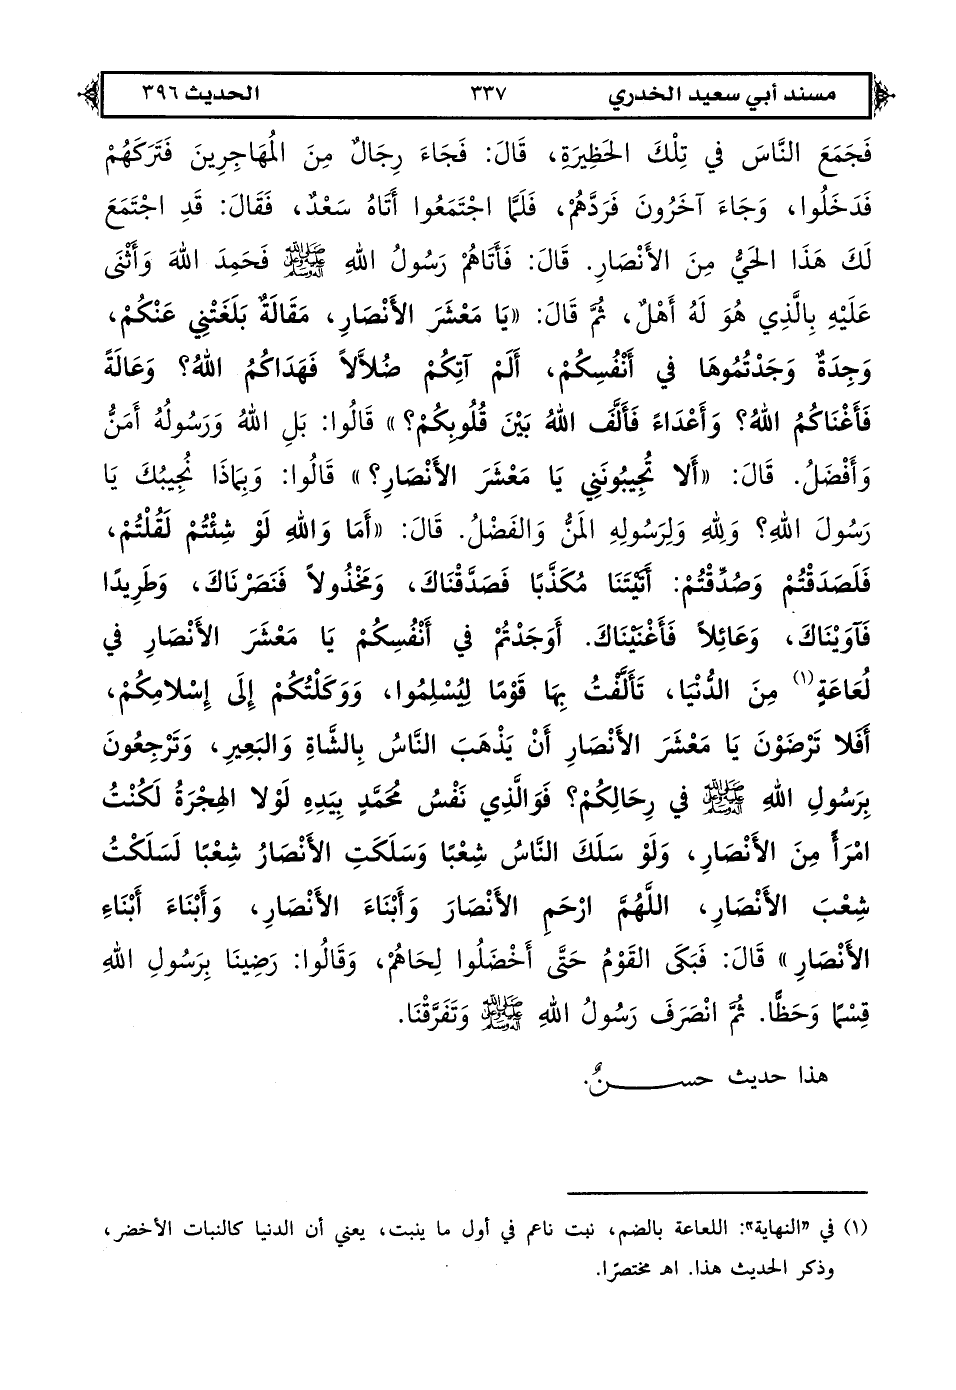 مسند أبي سعيد الخدري ٣٣٧ الحديث ٣٩٦
فَجَمَعَ النَّاسَ فِي تِلْكَ الحَظِيرَةِ، قَالَ: فَجَاءَ رِجَالٌ مِنَ المُهَاجِرِينَ فَتَرَكَهُمْ
فَدَخَلُوا، وَجَاءَ آخَرُونَ فَرَدَّهُمْ، فَلَمَّا اجْتَمَعُوا أَتَاهُ سَعْدٌ، فَقَالَ: قَدِ اجْتَمَعَ
لَكَ هَذَا الحَيُّ مِنَ الأَنْصَارِ. قَالَ: فَأَتَاهُمْ رَسُولُ اللهِ ﷺ فَحَمِدَ اللهَ وَأَثْنَى
عَلَيْهِ بِالَّذِي هُوَ لَهُ أَهْلٌ، ثُمَّ قَالَ: «يَا مَعْشَرَ الأَنْصَارِ، مَقَالَةٌ بَلَغَتْنِي عَنْكُمْ،
وَجِدَةٌ وَجَدْتُمُوهَا فِي أَنْفُسِكُمْ، أَلَمْ آتِكُمْ ضُلاَّلاً فَهَدَاكُمُ اللهُ؟ وَعَالَةً
فَأَغْنَاكُمُ اللهُ؟ وَأَعْدَاءً فَأَلَّفَ اللهُ بَيْنَ قُلُوبِكُمْ؟» قَالُوا: بَلِ اللهُ وَرَسُولُهُ أَمَنُّ
وَأَفْضَلُ. قَالَ: «أَلا تُجِيبُونَنِي يَا مَعْشَرَ الأَنْصَارِ؟» قَالُوا: وَبِمَاذَا نُجِيبُكَ يَا
رَسُولَ اللهِ؟ وَلِلهِ وَلِرَسُولِهِ المَنُّ وَالفَضْلُ. قَالَ: «أَمَا وَاللهِ لَوْ شِئْتُمْ لَقُلْتُمْ،
فَلَصَدَقْتُمْ وَصُدِّقْتُمْ: أَتَيْتَنَا مُكَذَّبًا فَصَدَّقْنَاكَ، وَمَخْذُولاً فَنَصَرْنَاكَ، وَطَرِيدًا
فَآوَيْنَاكَ، وَعَائِلاً فَأَغْنَيْنَاكَ. أَوَجَدْتُمْ فِي أَنْفُسِكُمْ يَا مَعْشَرَ الأَنْصَارِ فِي
لُعَاعَةٍ(١) مِنَ الدُّنْيَا، تَأَلَّفْتُ بِهَا قَوْمًا لِيُسْلِمُوا، وَوَكَلْتُكُمْ إِلَى إِسْلامِكُمْ،
أَفَلا تَرْضَوْنَ يَا مَعْشَرَ الأَنْصَارِ أَنْ يَذْهَبَ النَّاسُ بِالشَّاةِ وَالبَعِيرِ، وَتَرْجِعُونَ
بِرَسُولِ اللهِ ﷺ فِي رِحَالِكُمْ؟ فَوَالَّذِي نَفْسُ مُحَمَّدٍ بِيَدِهِ لَوْلا الهِجْرَةُ لَكُنْتُ
امْرَأً مِنَ الأَنْصَارِ، وَلَوْ سَلَكَ النَّاسُ شِعْبًا وَسَلَكَتِ الأَنْصَارُ شِعْبًا لَسَلَكْتُ
شِعْبَ الأَنْصَارِ، اللَّهُمَّ ارْحَمِ الأَنْصَارَ وَأَبْنَاءَ الأَنْصَارِ، وَأَبْنَاءَ أَبْنَاءِ
الأَنْصَارِ» قَالَ: فَبَكَى القَوْمُ حَتَّى أَخْضَلُوا لِحَاهُمْ، وَقَالُوا: رَضِينَا بِرَسُولِ اللهِ
قِسْمًا وَحَظًّا. ثُمَّ انْصَرَفَ رَسُولُ اللهِ ﷺ وَتَفَرَّقْنَا.
هذا حديث حســـــنٌ.
(١) في «النهاية»: اللعاعة بالضم، نبت ناعم في أول ما ينبت، يعني أن الدنيا كالنبات الأخضر،
وذكر الحديث هذا. اهـ مختصرًا.